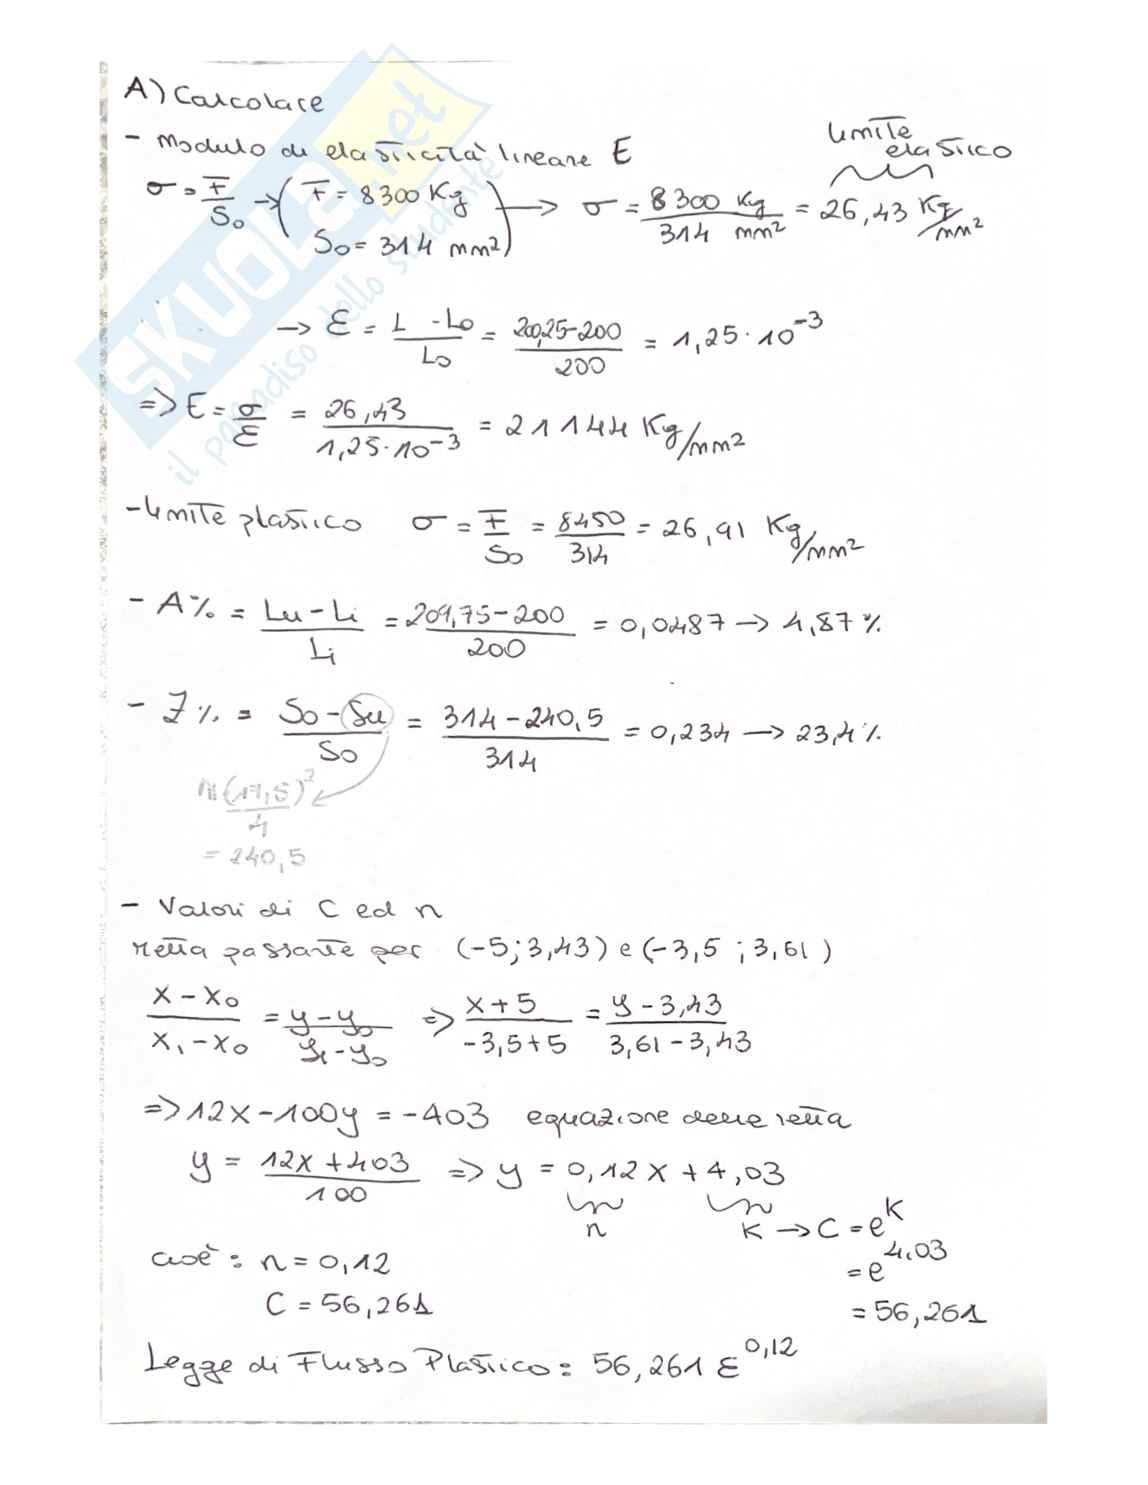 A) Calcolare
- Modulo di elasticità lineare E
limite elastico
σ = F/S₀ → (F = 8300 Kg S₀ = 314 mm²) → σ = 8300 Kg / 314 mm² = 26,43 Kg/mm²
→ ε = L - L₀ / L₀ = 200,25-200 / 200 = 1,25·10⁻³
=> E = σ/ε = 26,43 / 1,25·10⁻³ = 21144 Kg/mm²
- limite plastico σ = F/S₀ = 8450/314 = 26,91 Kg/mm²
- A% = Lu - Li / Li = 209,75-200 / 200 = 0,0487 → 4,87%
- Z% = S₀ - Su / S₀ = 314-240,5 / 314 = 0,234 → 23,4%
π(17,5)² / 4
= 240,5
- Valori di C ed n
retta passante per (-5; 3,43) e (-3,5 ; 3,61)
x - x₀ / x₁ - x₀ = y - y₀ / y₁ - y₀ => x + 5 / -3,5+5 = y - 3,43 / 3,61 - 3,43
=> 12x - 100y = -403 equazione della retta
y = 12x + 403 / 100 => y = 0,12x + 4,03
n K → C = eᴷ
cioè : n = 0,12 = e^4,03
C = 56,261 = 56,261
Legge di Flusso Plastico = 56,261 ε^0,12
SKUOLA.net
il paradiso dello studente